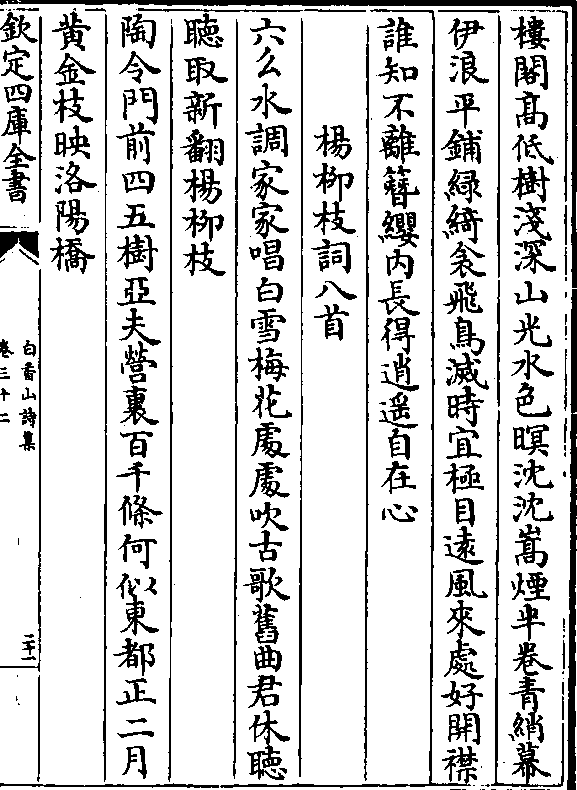 樓閣髙低樹淺深山光水色暝沈沈嵩煙半卷青綃幕
伊浪平鋪緑綺衾飛鳥滅時宜極目逺風來處好開襟
誰知不離簪纓内長得逍遥自在心
楊柳枝詞八首
六么水調家家唱白雪梅花處處吹古歌舊曲君休聴
聴取新翻楊柳枝
陶令門前四五樹亞夫營裏百千條何似東都正二月
黄金枝映洛陽橋
欽定四庫全書
白香山詩集
卷三十二
二十一